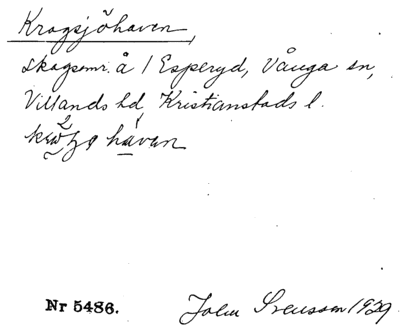 Kragsjöhaven,
skogsomr. å 1 Esperyd, Vånga sn,
Villands hd, Kristianstads l.
håvan
Nr 5486.
John Svensson 1929.